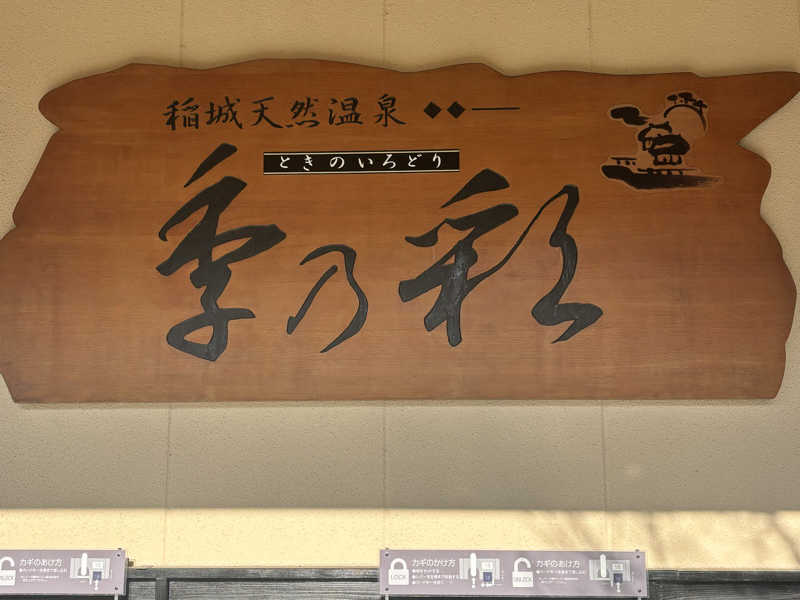 稲城天然温泉
ときのいろどり
季乃彩
カギのあけ方
UNLOCK
カギのかけ方
LOCK
カギのあけ方
UNLOCK